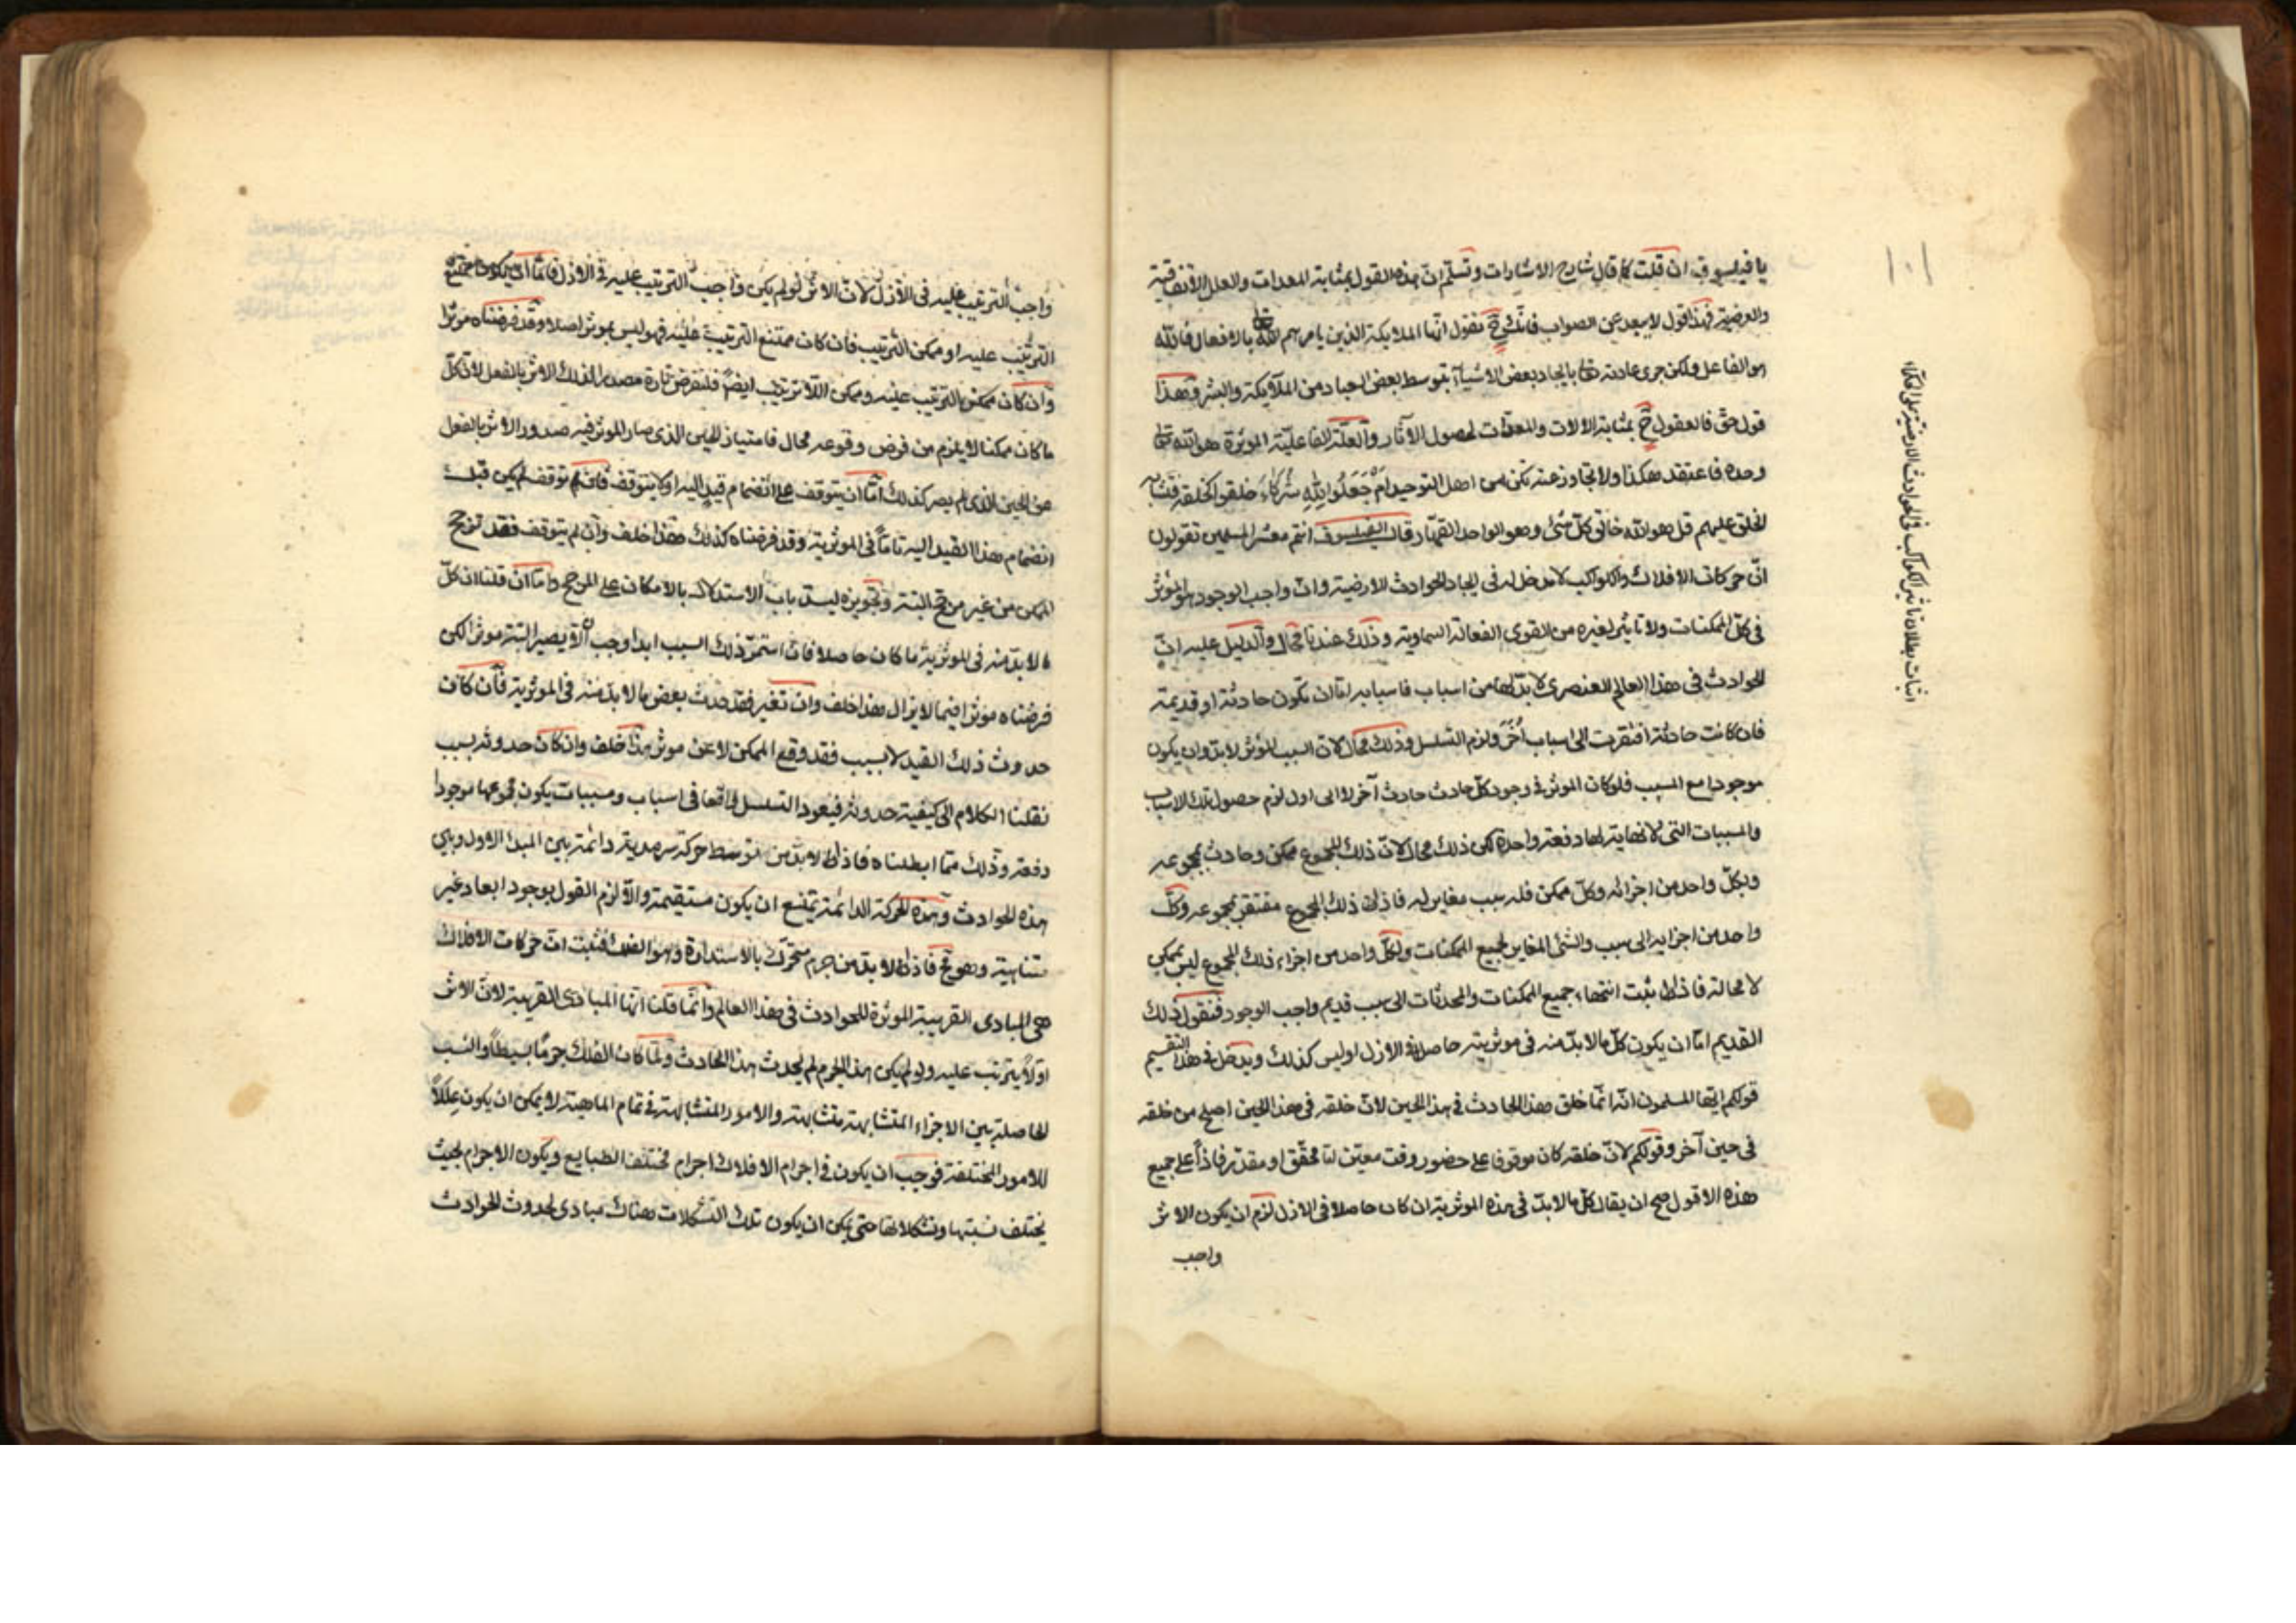 ١٠١
يا فيلسوف ان قلت كما قال شارح الاشارات وتسلم ان هذه القول بمثابة المعدات والعلل الاتفاقية
والعرضية فهذا القول لا يبعد عن الصواب فانك ح تقول انها الملايكة الذين يامرهم الله تعا بالافعال فالله
هو الفاعل ولكن جرى عادته تعا بايجاد بعض الاشياء بتوسط بعض العباد من الملآيكة والبشر وهذا
قول حق فالعقول ح بمثابة الالات والمعدات لحصول الآثار والعلة الفاعلية الموثرة هو الله تعا
وحده فاعتقد هكذا ولا تجاوز عنه تكن من اهل التوحيد اَمْ جَعَلُوا لِلّٰهِ شُرَكَاءَ خلقوا كخلقه فتشابه
الخلق عليهم قل هو الله خالق كل شئ وهو الواحد القهار وقال الفيلسوف انتم معشر المسلمين تقولون
انّ حركات الافلاك والكواكب لا مدخل له فى ايجاد الحوادث الارضية وانّ واجب الوجود هو الموثر
فى كلّ الممكنات ولا تاثير لغيره من القوى الفعالة السماوية وذلك عندنا محال والدليل عليه انّ
الحوادث فى هذا العالم العنصرى لا بدّ لها من اسباب فاسبابه اما ان تكون حادثة او قديمة
فان كانت حادثة افتقرت الى اسباب اُخَرَ ولزم التسلسل وذلك محال لانّ السبب الموثر لا بدّ وان يكون
موجودا مع المسبب فلو كان الموثر فى وجود كلّ حادث حادث آخر لا الى اول لزم حصول تلك الاسباب
والمسببات التى لا نهاية لها دفعة واحدة لكن ذلك محال لانّ ذلك المجموع ممكن وحادث بمجموعه
وبكلّ واحد من اجزائه وكلّ ممكن فله سبب مغاير له فاذن ذلك المجموع مفتقر بمجموعه وكلّ
واحد من اجزايه الى سبب والشئ المغاير لجميع الممكنات ولكلّ واحد من اجزاء ذلك المجموع ليس بممكن
لا محالة فاذن ثبت انتهاء جميع الممكنات والمحدثات الى سبب قديم واجب الوجود فنقول ذلك
القديم امّا ان يكون كلّ ما لا بدّ منه فى موثريته حاصلا فى الازل او ليس كذلك ويدخل فى هذا التقسيم
قولكم ايها المسلمون انّه انّما خلق هذا الحادث فى هذا الحين لانّ خلقه فى هذا الحين اصلح من خلقه
فى حين آخر وقولكم لانّ خلقه كان موقوفا على حضور وقت معيّن امّا محقّق او مقدّر فاذاً على جميع
هذه الاقول صح ان يقال كلّ ما لا بدّ فى هذه الموثرية ان كان حاصلا فى الازل لزم ان يكون الاثر
واجب
اثبات بطلان تاثير الكواكب فى الحوادث الارضية على الحكماء
واجب الترتيب عليه فى الأزل لانّ الاثر لو لم يكن واجب الترتيب عليه فى الازل فامّا ان يكون ممتنع
الترتيب عليه او ممكن الترتيب فان كان ممتنع الترتيب عليه فهو ليس بموثر اصلا وقد فرضناه موثرا
وان كان ممكن الترتيب عليه وممكن اللاترتيب ايضاً فلنفرض تارة مصدرا لذلك الاثر بالفعل لانّ كلّ
ما كان ممكنا لا يلزم من فرض وقوعه محال فامتياز الحين الذى صار الموثر فيه صدور الاثر بالفعل
عن الحين الذى لم يصر كذلك امّا ان يتوقف على انضمام قيد اليه او لا يتوقف فان توقف لم يكن قبل
انضمام هذا القيد اليه تاماً فى الموثرية وقد فرضناه كذلك هذا خلف وان لم يتوقف فقد ترجح
الممكن من غير مرجح البتة وتجويزه ليسد باب الاستدلال بالامكان على المرجح وامّا ان قلنا ان كلّ
ما لا بدّ منه فى الموثرية ما كان حاصلا فان استمرّ ذلك السبب ابدا وجب ان لا يصير البتة موثرا لكن
فرضناه موثرا فيما لا يزال هذا خلف وان تغير فقد حدث بعض ما لا بدّ منه فى الموثرية فان كان
حدوث ذلك القيد لا بسبب فقد وقع الممكن لا عن موثر هذا خلف وان كان حدوثه بسبب
نقلنا الكلام الى كيفية حدوثه فيعود التسلسل واقعا فى اسباب ومسببات يكون مجموعها موجودا
دفعة وذلك ممّا ابطلناه فاذن لا بدّ من توسط حركة سرمدية دائمة بين المبدأ الاول وبين
هذه الحوادث وهذه الحركة الدائمة يمتنع ان يكون مستقيمة والّا لزم القول بوجود ابعاد غير
متناهية وهو مح فاذن لا بدّ من جرم متحرّك بالاستدارة وهو الفلك فثبت انّ حركات الافلاك
هى المبادى القريبة الموثرة للحوادث فى هذا العالم وانّما قلنا انّها المبادى القريبة لانّ الاثر
اوّلاً يترتب عليه ولو لم يكن هذا الجرم لم يحدث هذا الحادث ولمّا كان الفلك جرمًا بسيطاً والنسب
الحاصلة بين الاجزاء المتشابهة متشابهة والامور المتشابهة فى تمام الماهية لا يمكن ان يكون عِلَلاً
للامور المختلفة فوجب ان يكون فى اجرام الافلاك اجرام مختلفة الطبايع ويكون الاجرام بحيث
يختلف نسبتها وتشكلاتها حتى يمكن ان يكون تلك التشكلات هناك مبادى لحدوث الحوادث